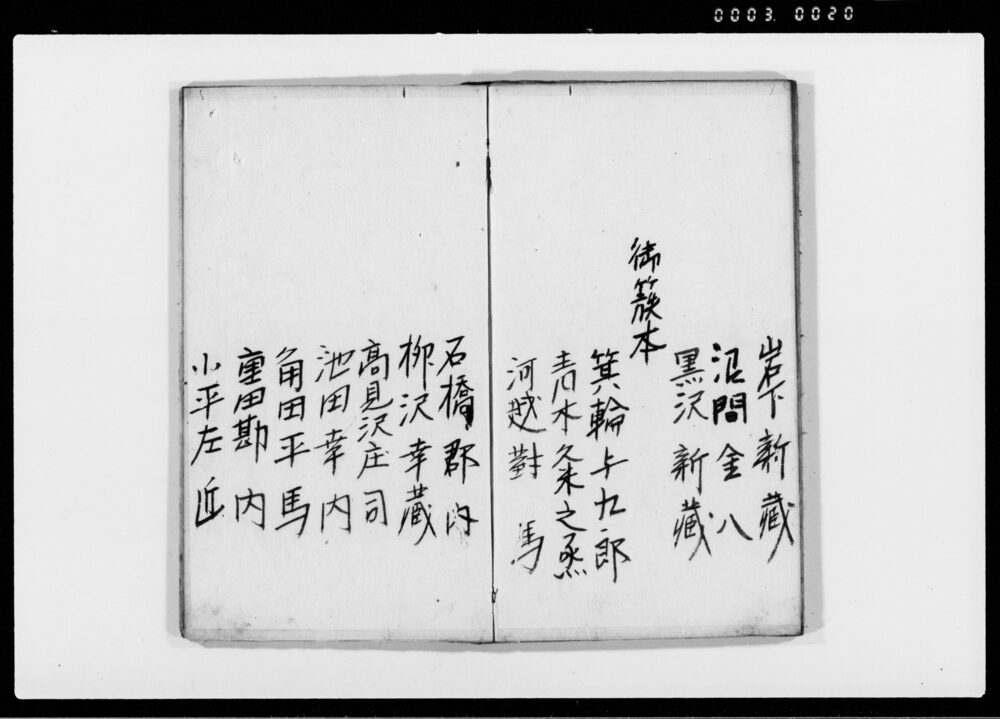 0003. 0020
岩下新藏
沼間金八
黒沢新藏
御簱本
箕輪与九郎
青木粂之烝
河越對馬
石橋郡内
柳沢幸藏
高見沢庄司
池田幸内
角田平馬
重田勘内
小平左近